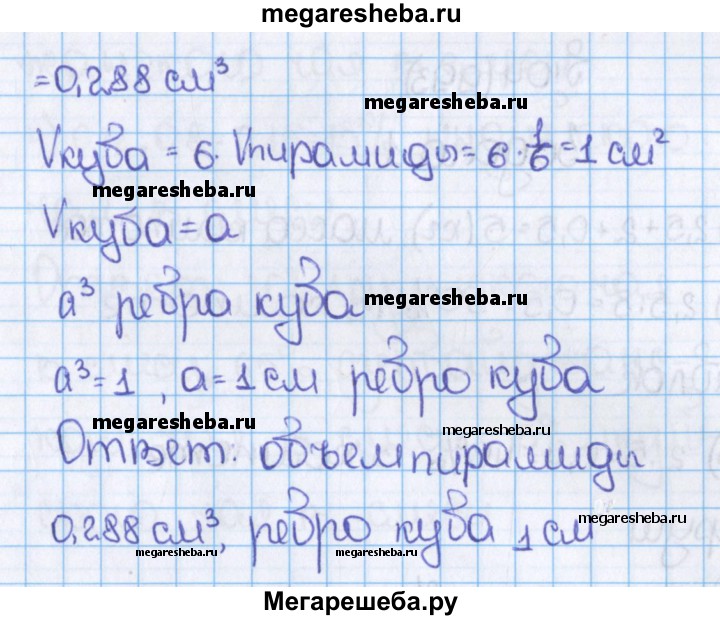 megaresheba.ru
=0,288 см³
megaresheba.ru
Vкуба = 6. Vпирамиды = 6·1/6=1 см²
megaresheba.ru
Vкуба=a
a³ ребра куба
megaresheba.ru
a³=1, a=1 см ребро куба
megaresheba.ru
megaresheba.ru
Ответ: объем пирамиды
0,288 см³, ребро куба 1 см
megaresheba.ru
megaresheba.ru
megaresheba.ru
Мегарешеба.ру